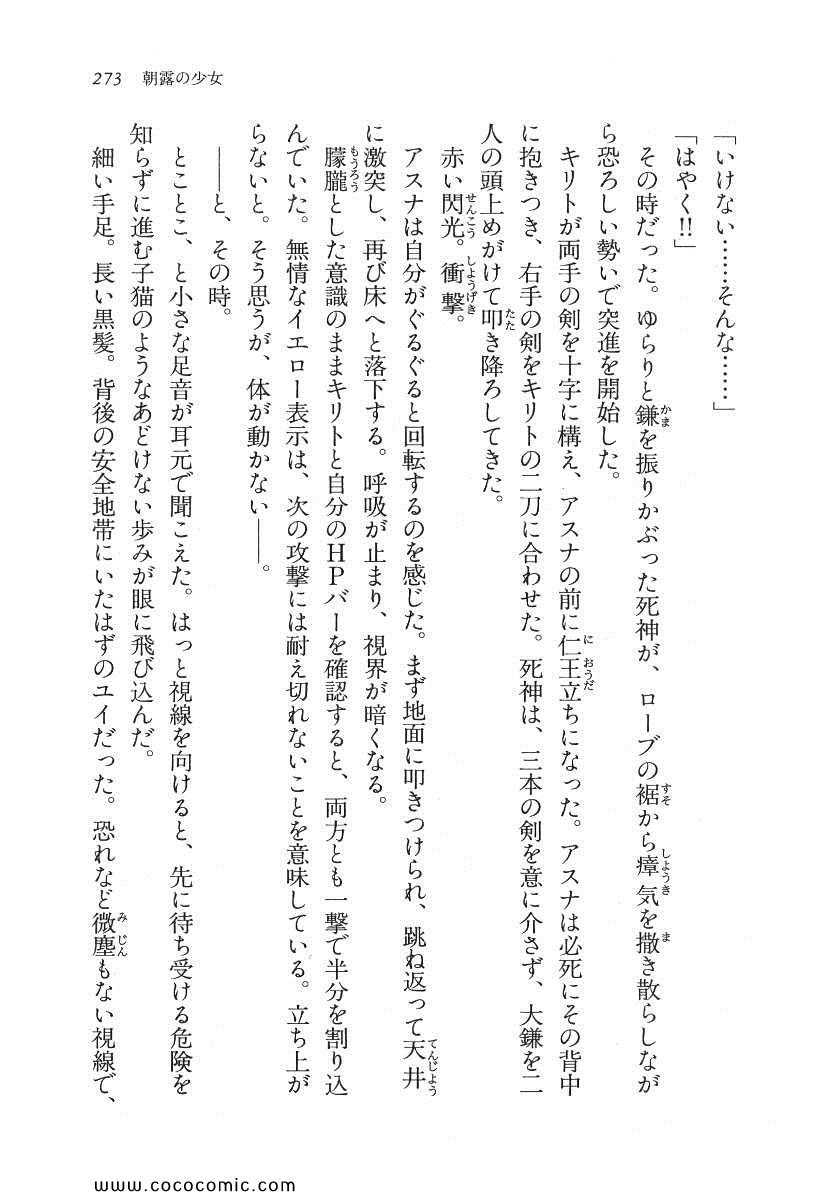 273 朝露の少女
「いけない……そんな……」
「はやく!!」
その時だった。ゆらりと鎌を振りかぶった死神が、ローブの裾から瘴気を撒き散らしなが
ら恐ろしい勢いで突進を開始した。
キリトが両手の剣を十字に構え、アスナの前に仁王立ちになった。アスナは必死にその背中
に抱きつき、右手の剣をキリトの二刀に合わせた。死神は、三本の剣を意に介さず、大鎌を二
人の頭上めがけて叩き降ろしてきた。
赤い閃光。衝撃。
アスナは自分がぐるぐると回転するのを感じた。まず地面に叩きつけられ、跳ね返って天井
に激突し、再び床へと落下する。呼吸が止まり、視界が暗くなる。
朦朧とした意識のままキリトと自分のHPバーを確認すると、両方とも一撃で半分を割り込
んでいた。無情なイエロー表示は、次の攻撃には耐え切れないことを意味している。立ち上が
らないと。そう思うが、体が動かない——。
——と、その時。
とことこ、と小さな足音が耳元で聞こえた。はっと視線を向けると、先に待ち受ける危険を
知らずに進む子猫のようなあどけない歩みが眼に飛び込んだ。
細い手足。長い黒髪。背後の安全地帯にいたはずのユイだった。恐れなど微塵もない視線で、
www.cococomic.com/